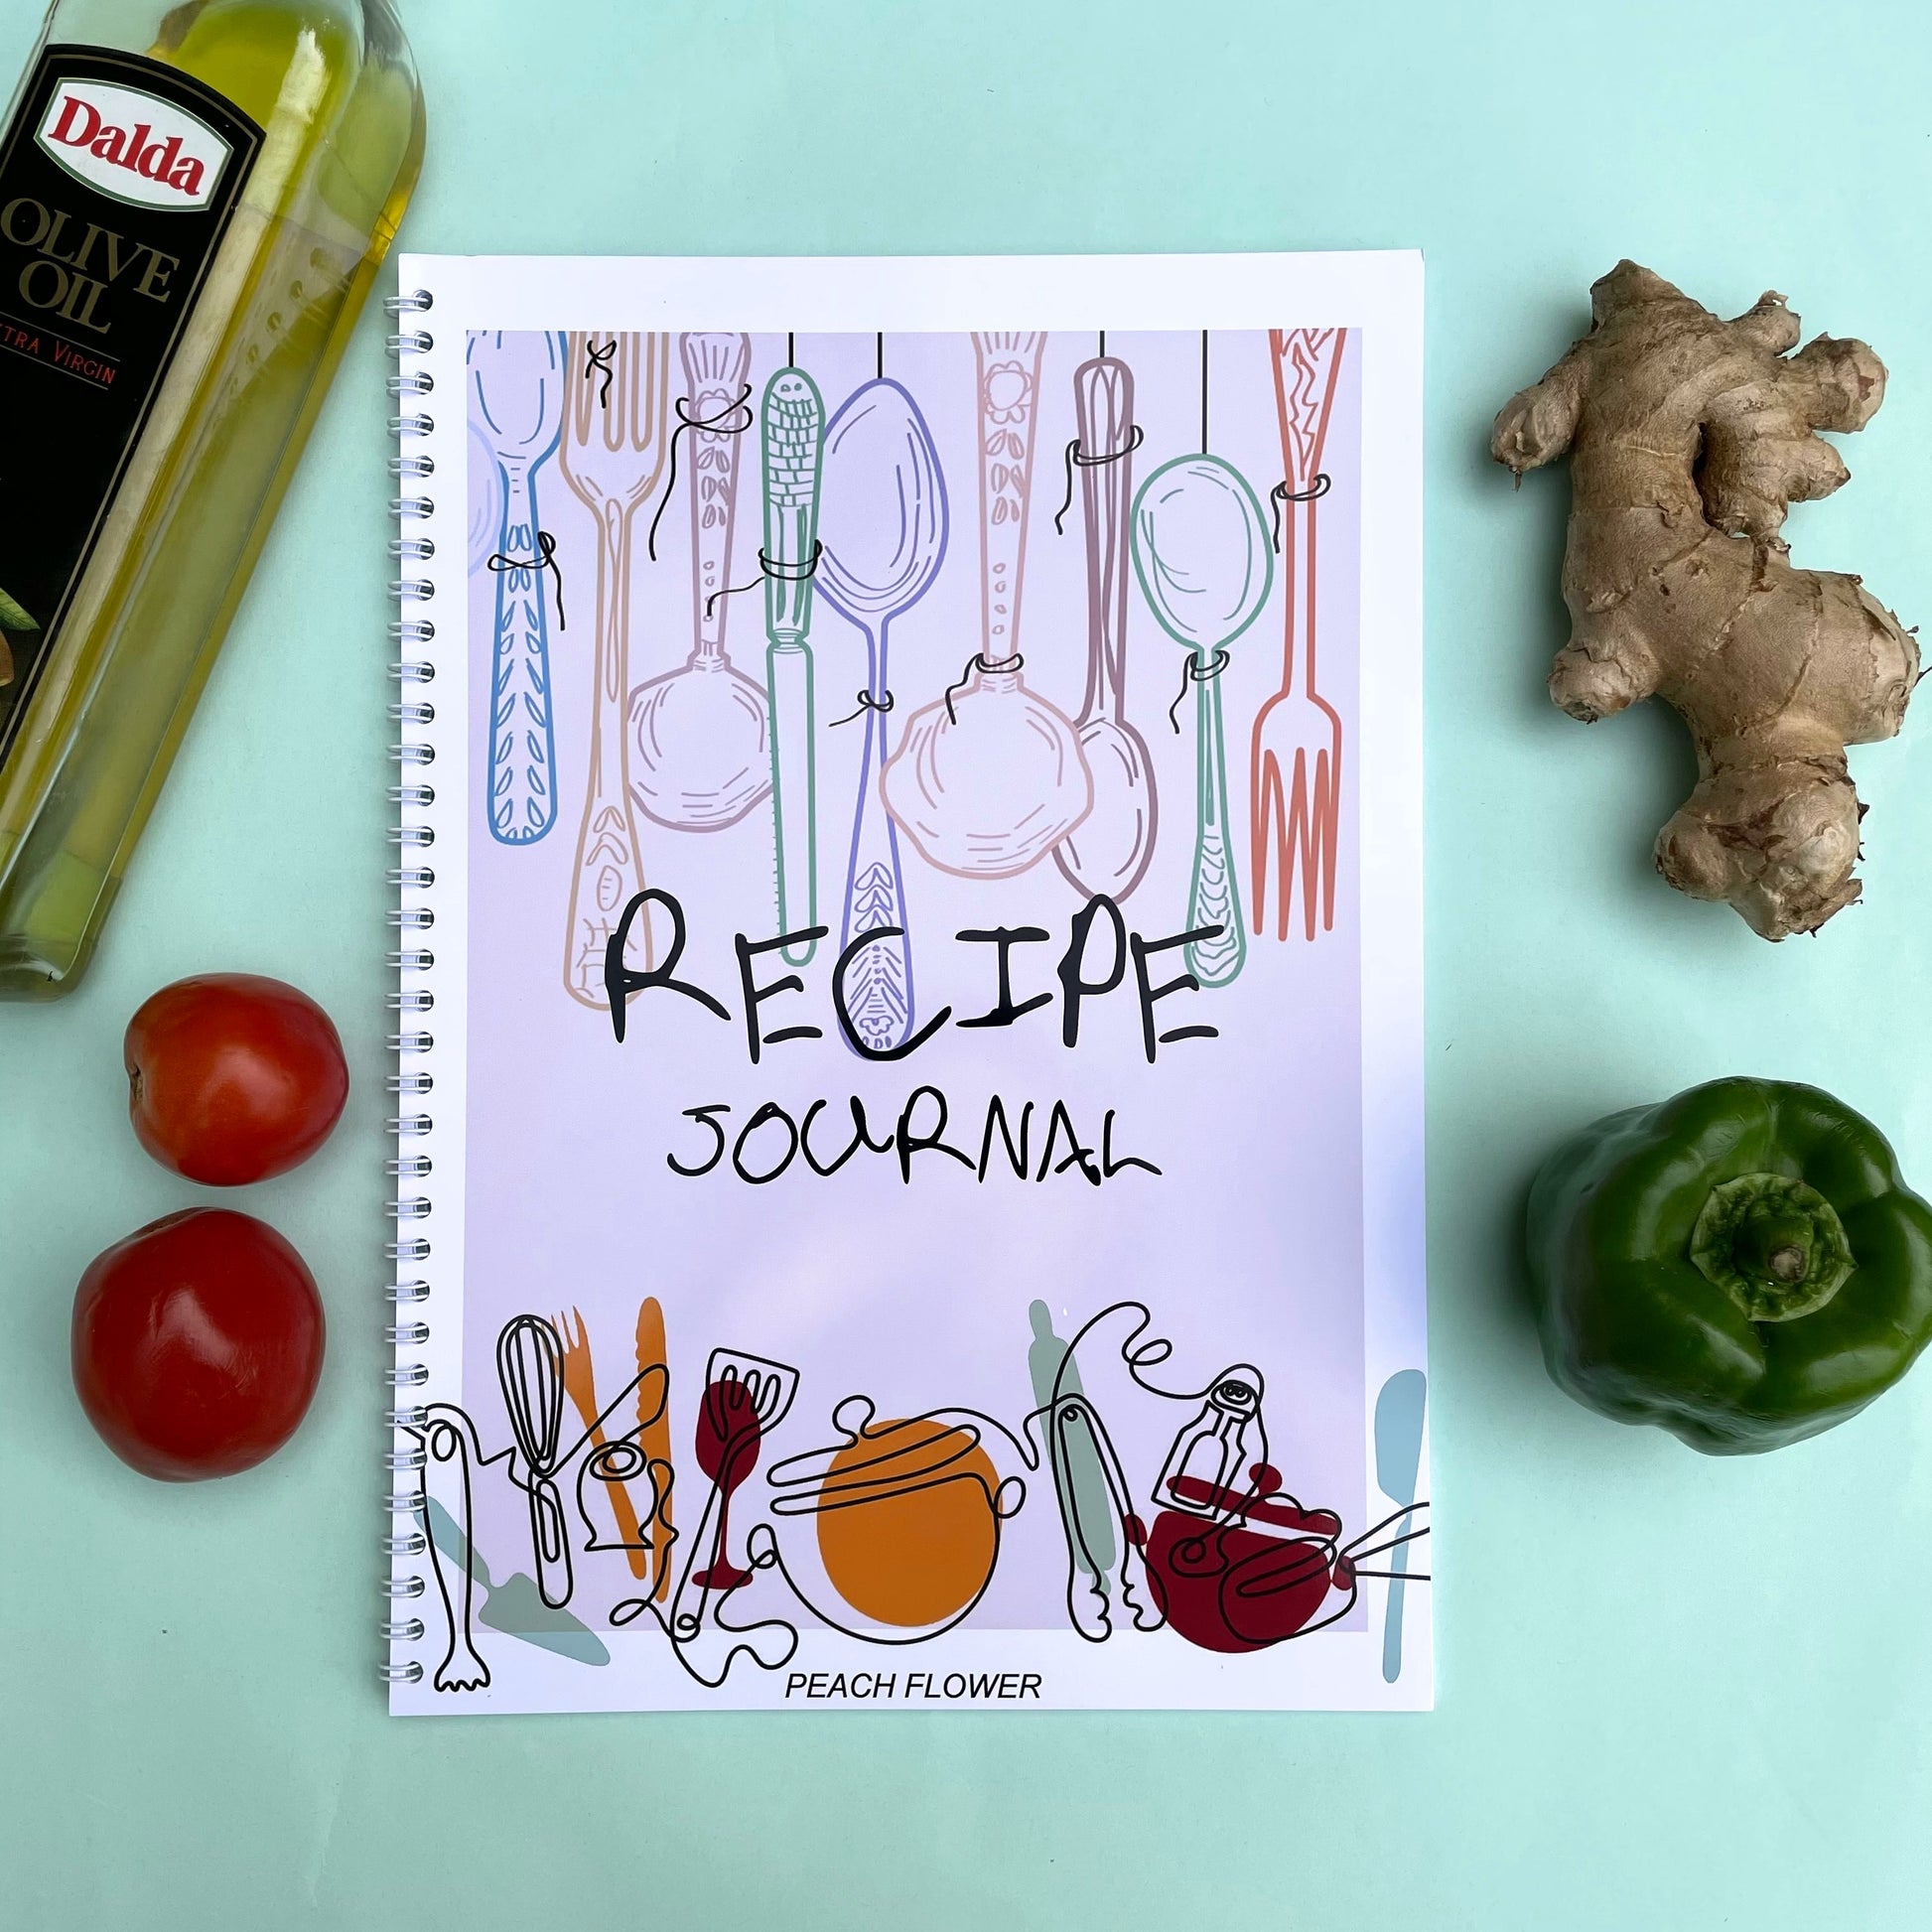 Dalda
OLIVE
OIL
XTRA VIRGIN
RECIPE
JOURNAL
PEACH FLOWER